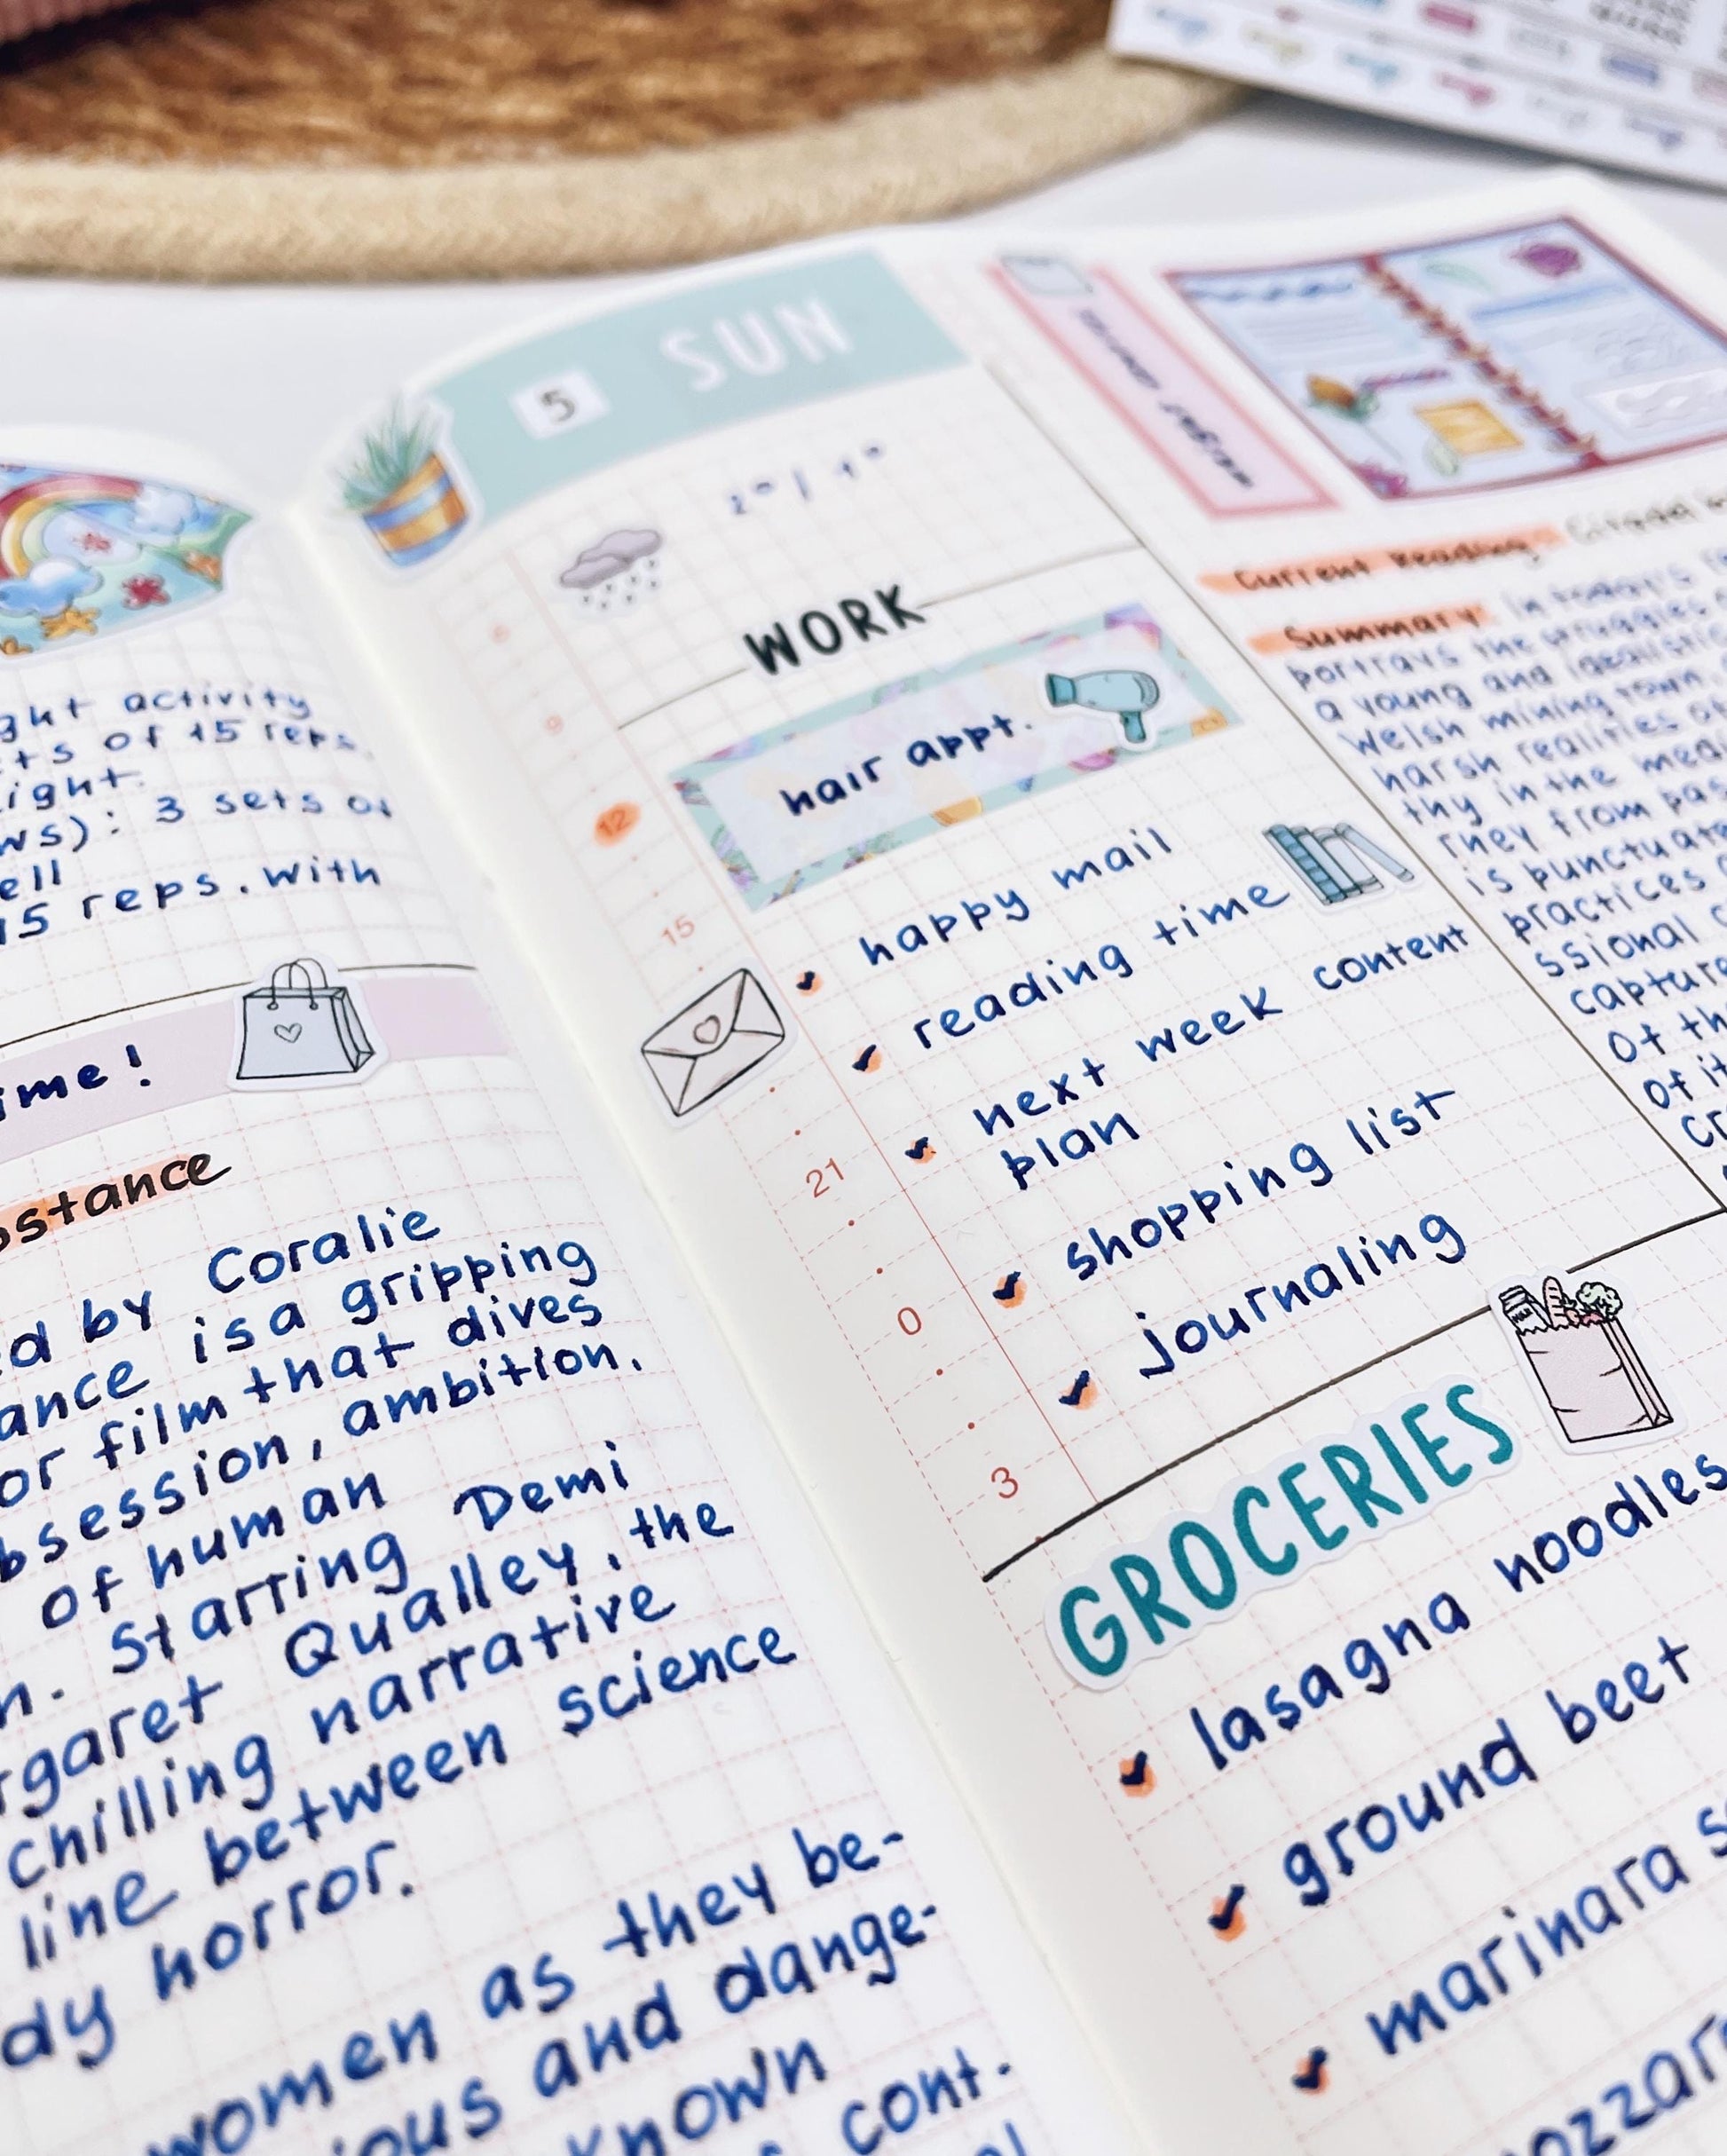 ght activity
ts of 15 reps.
ight.
ws): 3 sets of
ell
15 reps. with
ime!
stance
ed by Coralie
ance is a gripping
or film that dives
bsession, ambition,
of human
n. Starring Demi
rgaret Qualley, the
chilling narrative
line between science
dy horror.
women as they be-
ious and dange-
known
cont.
5 SUN
WORK
hair appt.
9
12
15
21
0
3
happy mail
reading time
next week content
plan
shopping list
journaling
GROCERIES
lasagna noodles
ground beef
marinara s
ozzar
Current Reading: Citadel
Summary: In today's
portrays the struggles
a young and idealistic
Welsh mining town.
harsh realities of
thy in the medi
They from pas
is punctuat
practices
ssional c
capture
of th
of it
cr